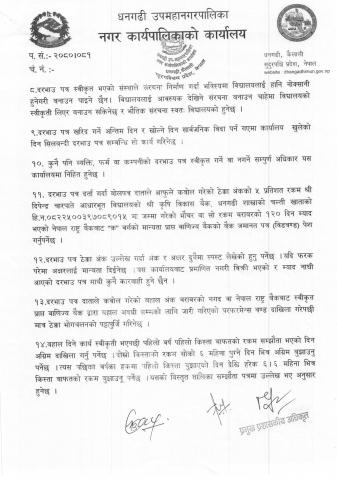 धनगढी उपमहानगरपालिका
नगर कार्यपालिकाको कार्यालय
प. सं.:- २०८०।०८१
च. नं. :-
धनगढी, कैलाली
सुदूरपश्चिम प्रदेश, नेपाल
website : dhangadhimun.gov.np
८.दरभाउ पत्र स्वीकृत भएको संस्थाले संरचना निर्माण गर्दा भविष्यमा विद्यालयलाई हानि नोक्सानी
हुनेगरी बनाउन पाइने छैन। विद्यालयलाई आवश्यक देखिने संरचना बनाउन चाहेमा विद्यालयको
स्वीकृती लिएर बनाउन सकिनेछ र भौतिक संरचना स्वतः विद्यालयको हुनेछ ।
९.दरभाउ पत्र खरिद गर्ने अन्तिम दिन र खोल्ने दिन सार्वजनिक विदा पर्न गएमा कार्यालय खुलेको
दिन सिलवन्दी दरभाउ पत्र सम्बन्धि सो कार्य गरिनेछ ।
१०. कुनै पनि व्यक्ति, फर्म वा कम्पनीको दरभाउ पत्र स्वीकृत गर्ने वा नगर्ने सम्पूर्ण अधिकार यस
कार्यालयमा निहित हुनेछ ।
११. दरभाउ पत्र दर्ता गर्दा बोलपत्र दाताले आफुले कवोल गरेको ठेक्का अंकको ५ प्रतिशत रकम श्री
दिपेन्द्र चारपाते आधारभूत विद्यालयको श्री कृषि विकास बैंक, धनगढी शाखाको चल्ती खाताको
हि.नं. मा जम्मा गरेको भौचर वा सो रकम बराबरको १२० दिन म्याद
भएको नेपाल राष्ट्र बैंकबाट "क" बर्गको मान्यता प्राप्त बाणिज्य बैंकको बैंक जमानत पत्र (विडवण्ड) पेश
गर्नुपर्नेछ ।
१२.दरभाउ पत्रमा ठेक्का अंक उल्लेख गर्दा अंक र अक्षर दुवैमा स्पस्ट लेखेको हुनु पर्नेछ । यदि फरक
परेमा अक्षरलाई मान्यता दिईनेछ । यस कार्यालयबाट प्रमाणित नगरी बिक्री भएको र म्याद नाघी
आएको दरभाउ पत्र माथी कुनै कारवाही हुने छैन ।
१३.दरभाउ पत्र दाताले कबोल गरेको बहाल अंक बराबरको नगद वा नेपाल राष्ट्र बैंकबाट स्वीकृत
प्राप्त बाणिज्य बैंक द्वारा बहाल अवधी सम्मको लागि जारी गरिएको परफरमेन्स बण्ड दाखिला गरेपछी
मात्र ठेक्का भोगचलनको पट्टापुर्जी गरिनेछ ।
१४.बहाल दिने कार्य स्वीकृती भएपछी पहिलो बर्ष पहिलो किस्ता बाफतको रकम सम्झौता भएको दिन
अग्रिम दाखिला गर्नु पर्नेछ । दोस्रो किस्ताको रकम सोको ६ महिना पुग्ने दिन भित्र अग्रिम बुझाउनु
पर्नेछ । त्यस पछिका बर्षका हकमा पहिलो किस्ता बुझाएको दिन देखि हरेक ६।६ महिना भित्र
किस्ता बाफतको रकम बुझाउनु पर्नेछ । यसको विस्तृत तालिका सम्झौता पत्रमा उल्लेख भए अनुसार
हुनेछ ।
प्रमुख प्रशासकीय अधिकृत